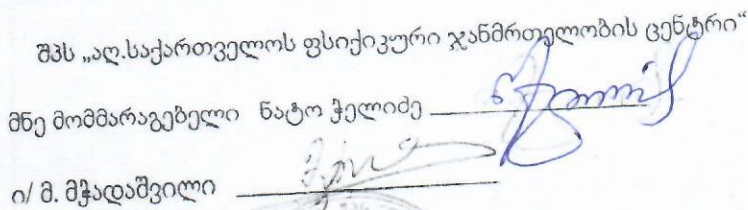 შპს „აღ.საქართველოს ფსიქიკური ჯანმრთელობის ცენტრი“
მნე მომმარაგებელი ნატო ჭელიძე
ი/ მ. მჭადაშვილი